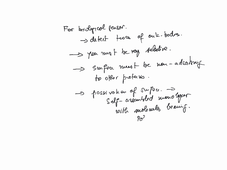 For biological sensor.
→ detect turn of anti-bodies.
→ you must be very selective.
→ surface must be non-adsorbing
to other proteins.
→ passivation of surface. →
Self-assembled monolayer
with molecules bearing